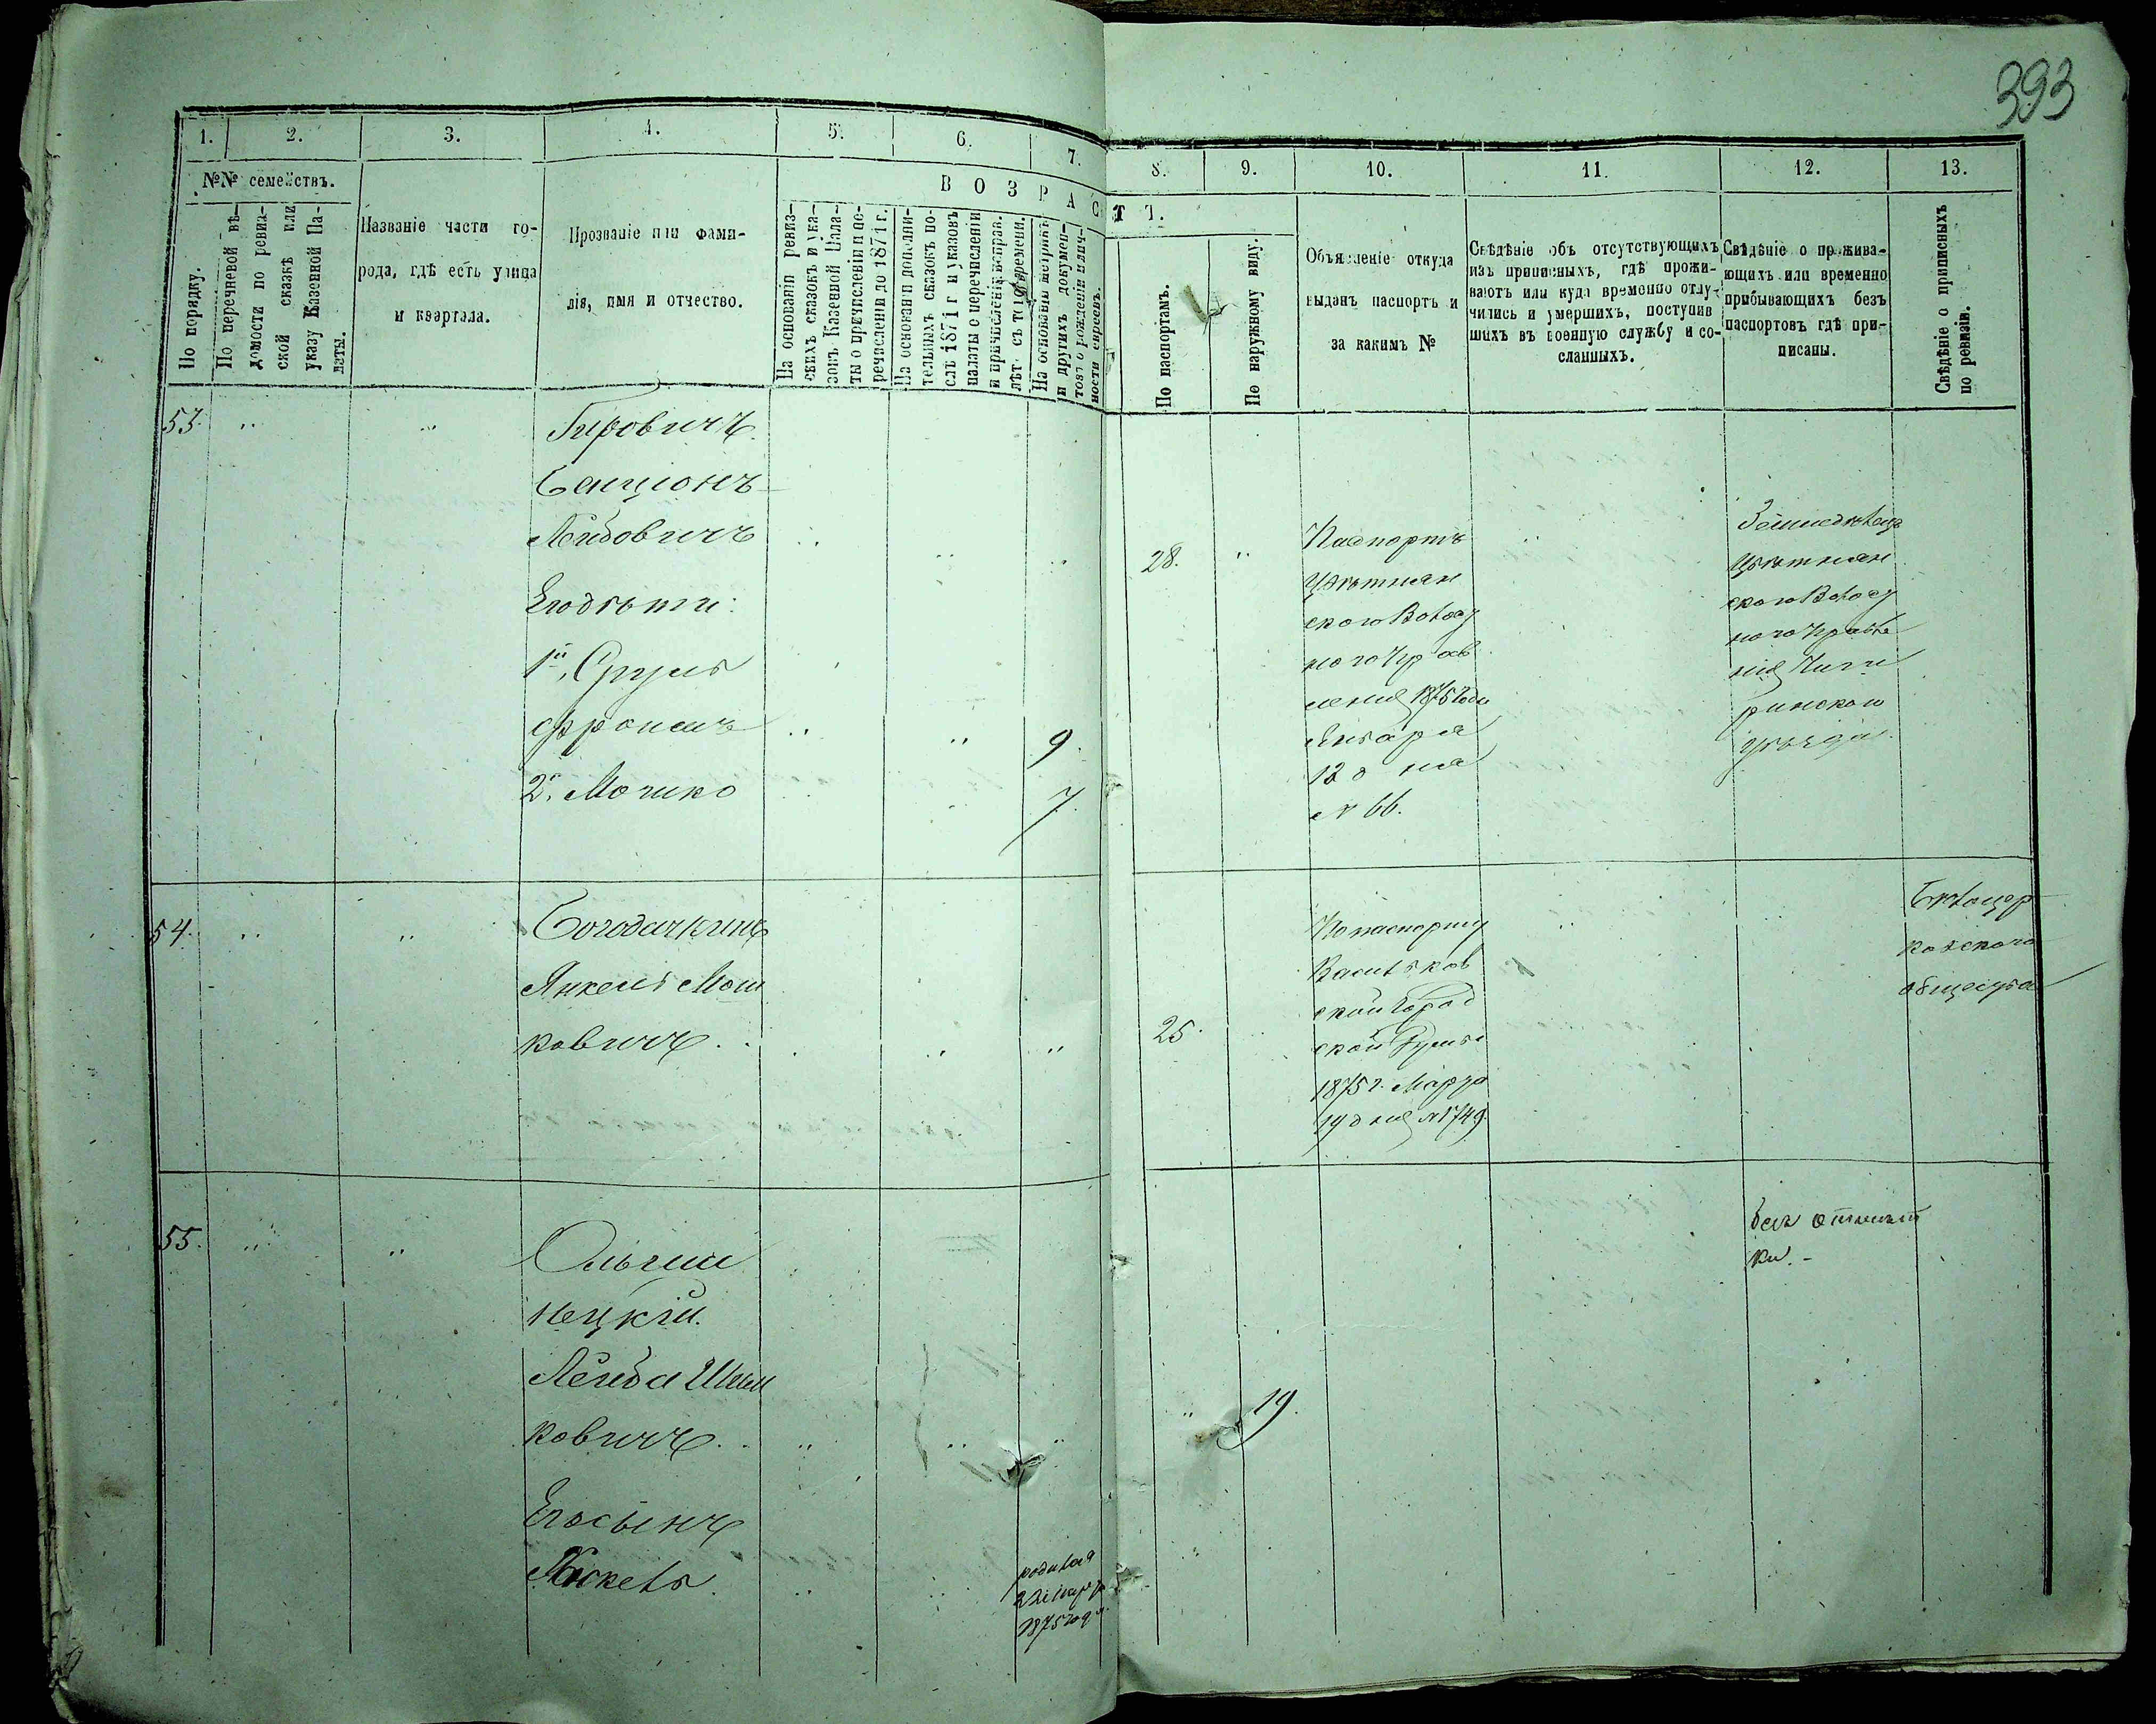 393
1. 2. 3. 4. 5. 6. 7. 8. 9. 10. 11. 12. 13.
№№ семействъ.
По порядку.
По перечневой вѣ-
домости по ревиз-
ской сказкѣ или
указу Казенной Па-
латы.
Названіе части го-
рода, гдѣ есть улица
и квартала.
Прозваніе или фами-
лія, имя и отчество.
ВОЗРАСТЪ.
На основаніи ревиз-
скихъ сказокъ и ука-
зовъ Казенной Пала-
ты о причисленіи и пе-
речисленіи до 1871 г.
На основаніи дополни-
тельныхъ сказокъ по-
слѣ 1871 г и указовъ
палаты о перечисленіи
и причисленіи исправ.
лѣтъ съ того времени.
На основаніи метрикъ
и другихъ докумен-
товъ о рожденіи и лич-
ности справъ.
По паспортамъ.
По наружному виду.
Объясненіе откуда
выданъ паспортъ и
за какимъ №
Свѣдѣніе объ отсутствующихъ
изъ приписныхъ, гдѣ прожи-
ваютъ или куда временно отлу-
чились и умершихъ, поступив
шихъ въ военную службу и со-
сланныхъ.
Свѣдѣніе о прожива-
ющихъ или временно
прибывающихъ безъ
паспортовъ гдѣ при-
писаны.
Свѣдѣніе о приписныхъ
по ревизіи.
53.
Бенціонъ
Лейбовичъ
Его дѣти:
1й Сруль
Фроимъ 9.
2й Мошко 7.
28.
Паспортъ
Цвѣтнян
скаго Волост
наго Прав
ленія 1875 года
Января
12 дня
№ 66.
Земледѣлецъ
Цвѣтнян
скаго Волост
наго Правле
нія Чиги
ринскаго
уѣзда.
54.
Богодачкинъ
Янкель Мош
ковичъ
25.
По паспорту
Васильков
ской Город
ской Думы
1875 г. Марта
19 дня № 1749.
Бѣлоцер
ковскаго
общества
55.
Ольшан
нецкій.
Лейба Шим
ковичъ
19.
Его сынъ
родился
22 марта
1875 года.
безъ отмѣт
ки. -